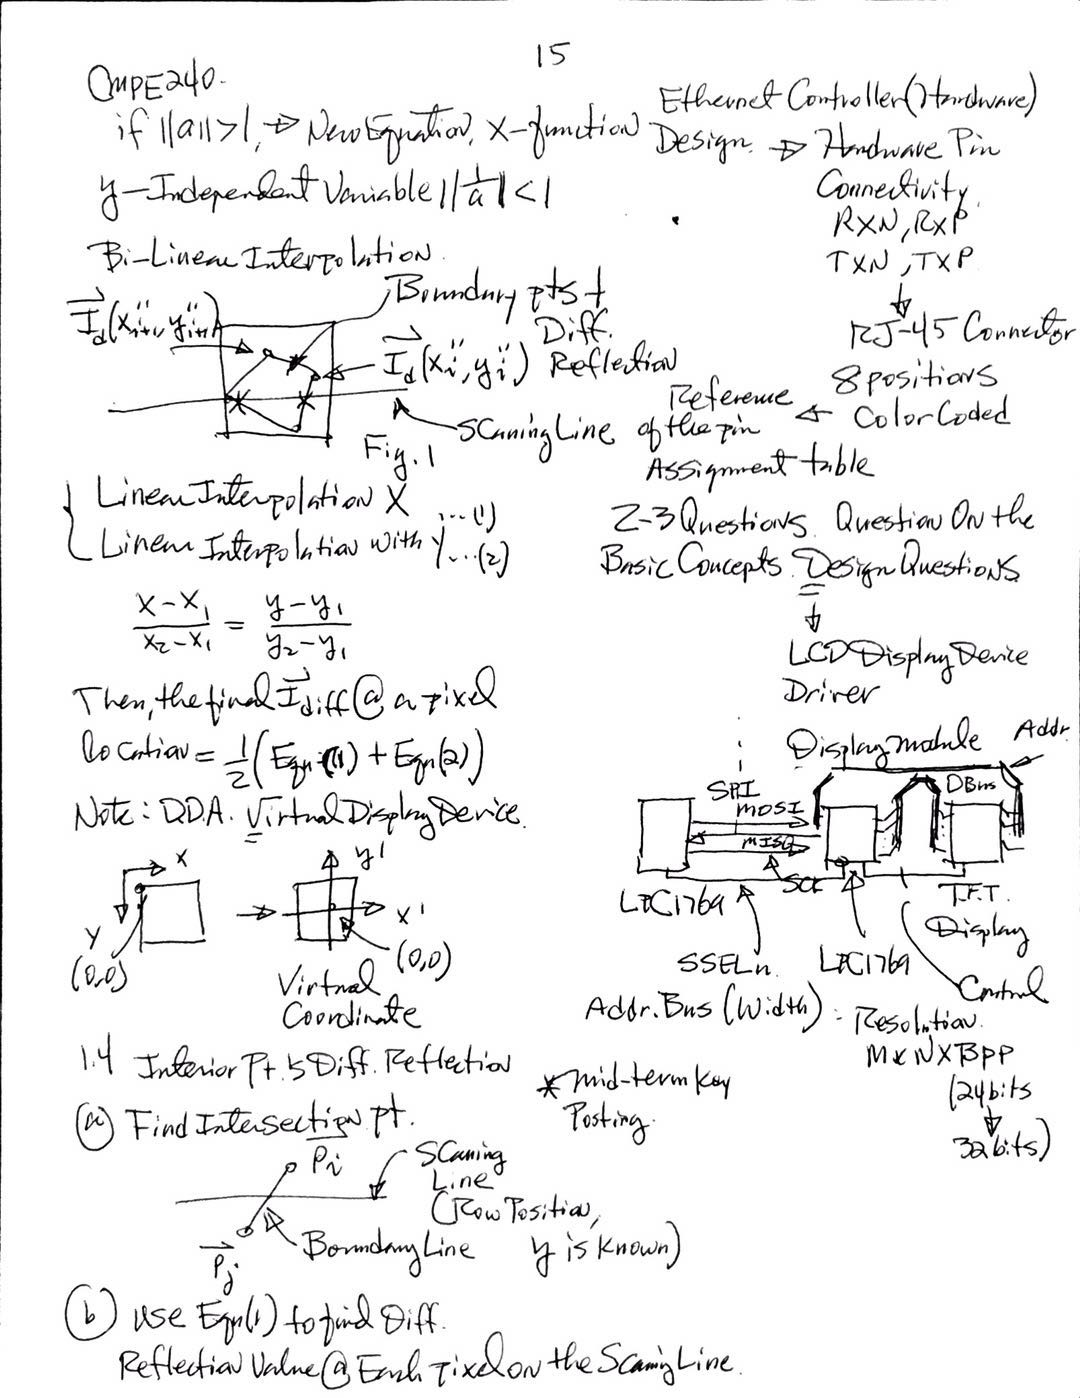 15
CMPE240.
if ||a||>1, → New Equation, X-function
y-Independent Variable ||1/a||<1
Bi-Linear Interpolation.
Boundary pts t
Diff.
Reflection
I_d(x''_{i+1}, y''_{i+1})
I_d(x''_i, y''_i)
Scaning Line
Fig.1
Linear Interpolation X ...(1)
Linear Interpolation with Y...(2)
(x-x_1)/(x_2-x_1) = (y-y_1)/(y_2-y_1)
Then, the final I_diff @ a pixel
location = 1/2 (Eqn(1) + Eqn(2))
Note: D.D.A. Virtual Display Device.
X
Y
(0,0)
→
y'
x'
(0,0)
Virtual
Coordinate
1.4 Interior Pt.'s Diff. Reflection
(a) Find Intersection pt.
P_i
Scaning
Line
(Row Position,
y is known)
P_j
Boundary Line
(b) Use Eqn(1) to find Diff.
Reflection Value @ Each pixel on the Scaning Line.
Ethernet Controller (Hardware)
Design. → Hardware Pin
Connectivity.
RXN, RXP
TXN, TXP
RJ-45 Connector
8 positions
Color Coded
Reference
of the pin
Assignment table
2-3 Questions. Question On the
Basic Concepts. Design Questions
LCD Display Device
Driver
Display module
Addr.
SPI
MOSI
MISO
SCK
DBus
LPC1769
SSELn.
LPC1769
T.F.T.
Display
Control
Addr. Bus (Width): Resolution.
M×N×BPP
(24bits
32bits)
* Mid-term Key
Posting.